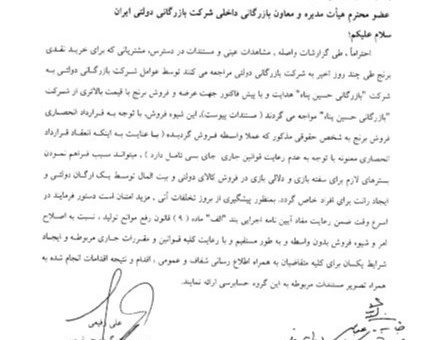 عضو محترم هیأت مدیره و معاون بازرگانی داخلی شرکت بازرگانی دولتی ایران
سلام علیکم؛
احتراماً، طی گزارشات واصله، مشاهدات عینی و مستندات در دسترس، مشتریانی که برای خرید نقدی
برنج طی چند روز اخیر به شرکت بازرگانی دولتی مراجعه می کنند توسط عوامل شرکت بازرگانی دولتی به
شرکت "بازرگانی حسین پناه" هدایت و با پیش فاکتور جهت عرضه و فروش برنج با قیمت بالاتری از شرکت
"بازرگانی حسین پناه" مواجه می گردند ( مستندات پیوست)، این شیوه فروش، با توجه به قرارداد انحصاری
فروش برنج به شخص حقوقی مذکور که عملا واسطه فروش گردیده ( با عنایت به اینکه انعقاد قرارداد
انحصاری معنونه با توجه به عدم رعایت قوانین جاری جای بسی تامل دارد ) ، میتواند سبب فراهم نمودن
بسترهای لازم برای سفته بازی و دلالی بازی در فروش کالای دولتی و بیت المال توسط یک ارگان دولتی و
ایجاد رانت برای افراد خاص گردد. بمنظور پیشگیری از بروز تخلفات آتی ، مزید امتنان است دستور فرمایند در
اسرع وقت ضمن رعایت مفاد آیین نامه اجرایی بند "الف" ماده ( ۹ ) قانون رفع موانع تولید ، نسبت به اصلاح
امر و شیوه فروش بدون واسطه و به طور مستقیم و با رعایت کلیه قوانین و مقررات جاری مربوطه و ایجاد
شرایط یکسان برای کلیه متقاضیان به همراه اطلاع رسانی شفاف و عمومی ، اقدام و نتیجه اقدامات انجام شده به
همراه تصویر مستندات مربوطه به این گروه حسابرسی ارائه نمایند.
علی رفیعی